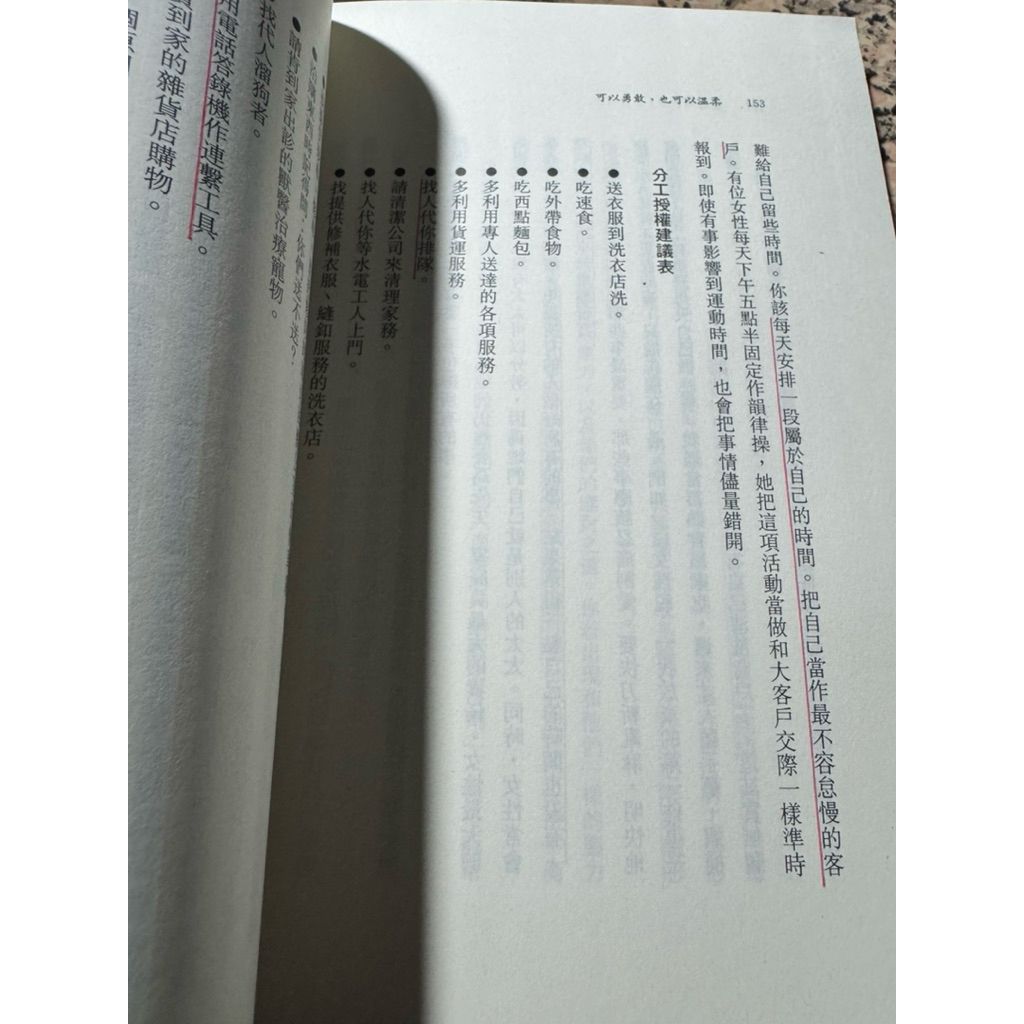 可以勇敢，也可以溫柔 153
難給自己留些時間。你該每天安排一段屬於自己的時間。把自己當作最不容怠慢的客
戶。有位女性每天下午五點半固定作韻律操，她把這項活動當做和大客戶交際一樣準時
報到。即使有事影響到運動時間，也會把事情儘量錯開。
分工授權建議表
●送衣服到洗衣店洗。
●吃速食。
●吃外帶食物。
●吃西點麵包。
●多利用專人送達的各項服務。
●多利用貨運服務。
●找人代你排隊。
●請清潔公司來清理家務。
●找人代你等水電工人上門。
●找提供修補衣服、縫釦服務的洗衣店。
你們送不送？
●請肯到家出診的獸醫治療寵物。
找代人溜狗者。
用電話答錄機作連繫工具。
到家的雜貨店購物。